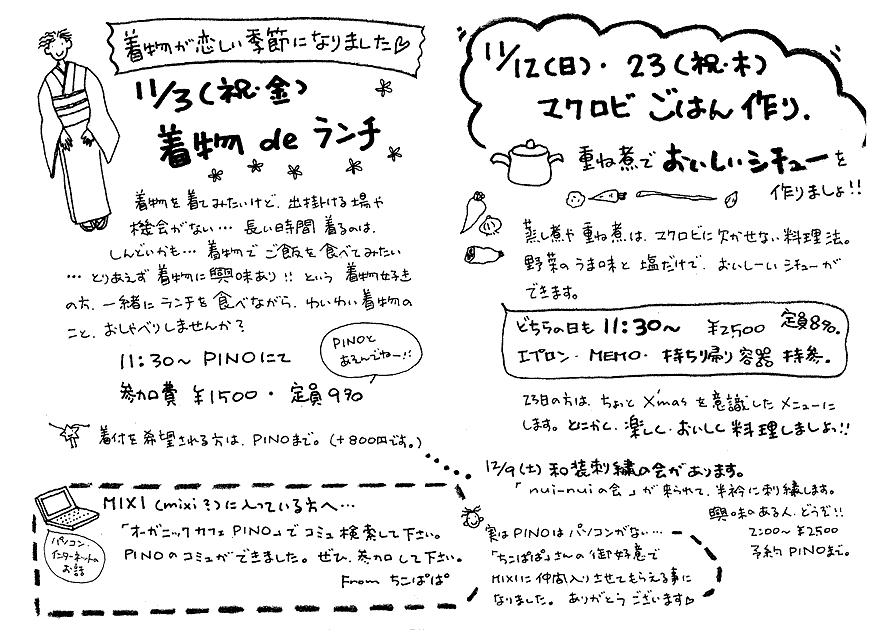 着物が恋しい季節になりました♡
11/3(祝・金)
着物 de ランチ
着物を着てみたいけど、出掛ける場や
機会がない… 長い時間 着るのは、
しんどいかも… 着物で ご飯を食べてみたい
… とりあえず 着物に興味あり!! という 着物好き
の方、一緒に ランチを 食べながら、わいわい着物の
こと、おしゃべりしませんか?
PINOと
あそんでねー!!
11:30～ PINOにて
参加費 ¥1500・定員9名
着付を希望される方は、PINOまで。(+800円です。)
11/12(日)・23(祝・木)
マクロビ ごはん作り.
重ね煮で おいしいシチューを
作りましょ!!
蒸し煮や重ね煮は、マクロビに欠かせない料理法。
野菜のうま味と塩だけで、おいしーい シチューが
できます。
どちらの日も 11:30～ ¥2500 定員8名。
エプロン・MEMO・持ち帰り容器 持参。
23日の方は、ちょっと X'mas を意識したメニューに
します。とにかく、楽しく・おいしく料理しましょっ!!
12/9(土) 和装刺繍の会があります。
「nui-nuiの会」が来られて、半衿に刺繍します。
興味のある人、どうぞ!!
2:00～ ¥2500
予約 PINOまで。
MIXI (mixi?)に入っている方へ…
「オーガニックカフェ PINO」で コミュ検索して下さい。
PINOのコミュができました。ぜひ、参加して下さい。
From ちこぱぱ
パソコン、
インターネットの
お話
実はPINOは パソコンがない…
「ちこぱぱ」さんの 御好意で
MIXIに仲間入りさせてもらえる事に
なりました。ありがとう ございます♡